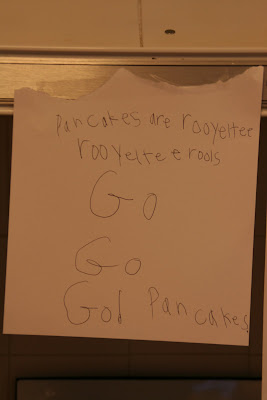 Pancakes are rooyeltee
rooyeltee rools
Go
Go
Go! Pancakes